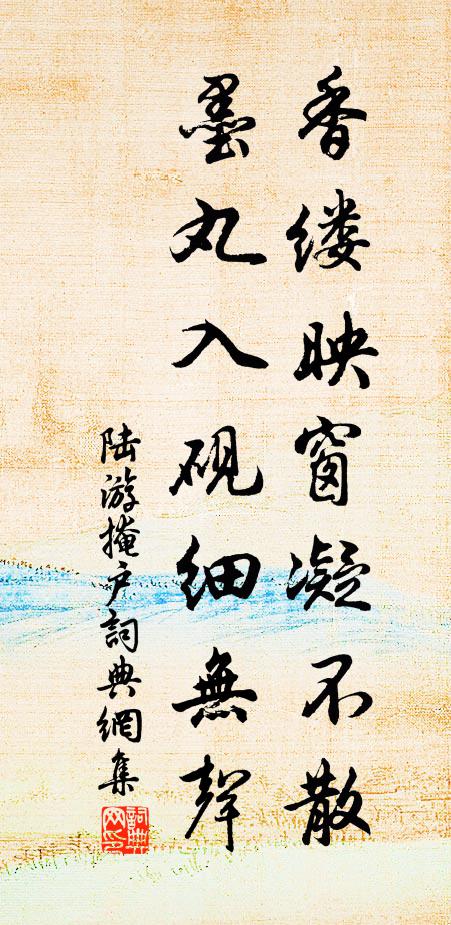 香缕映窗凝不散
墨丸入砚细無聲
陆游掩户詞典網集
詞典网印